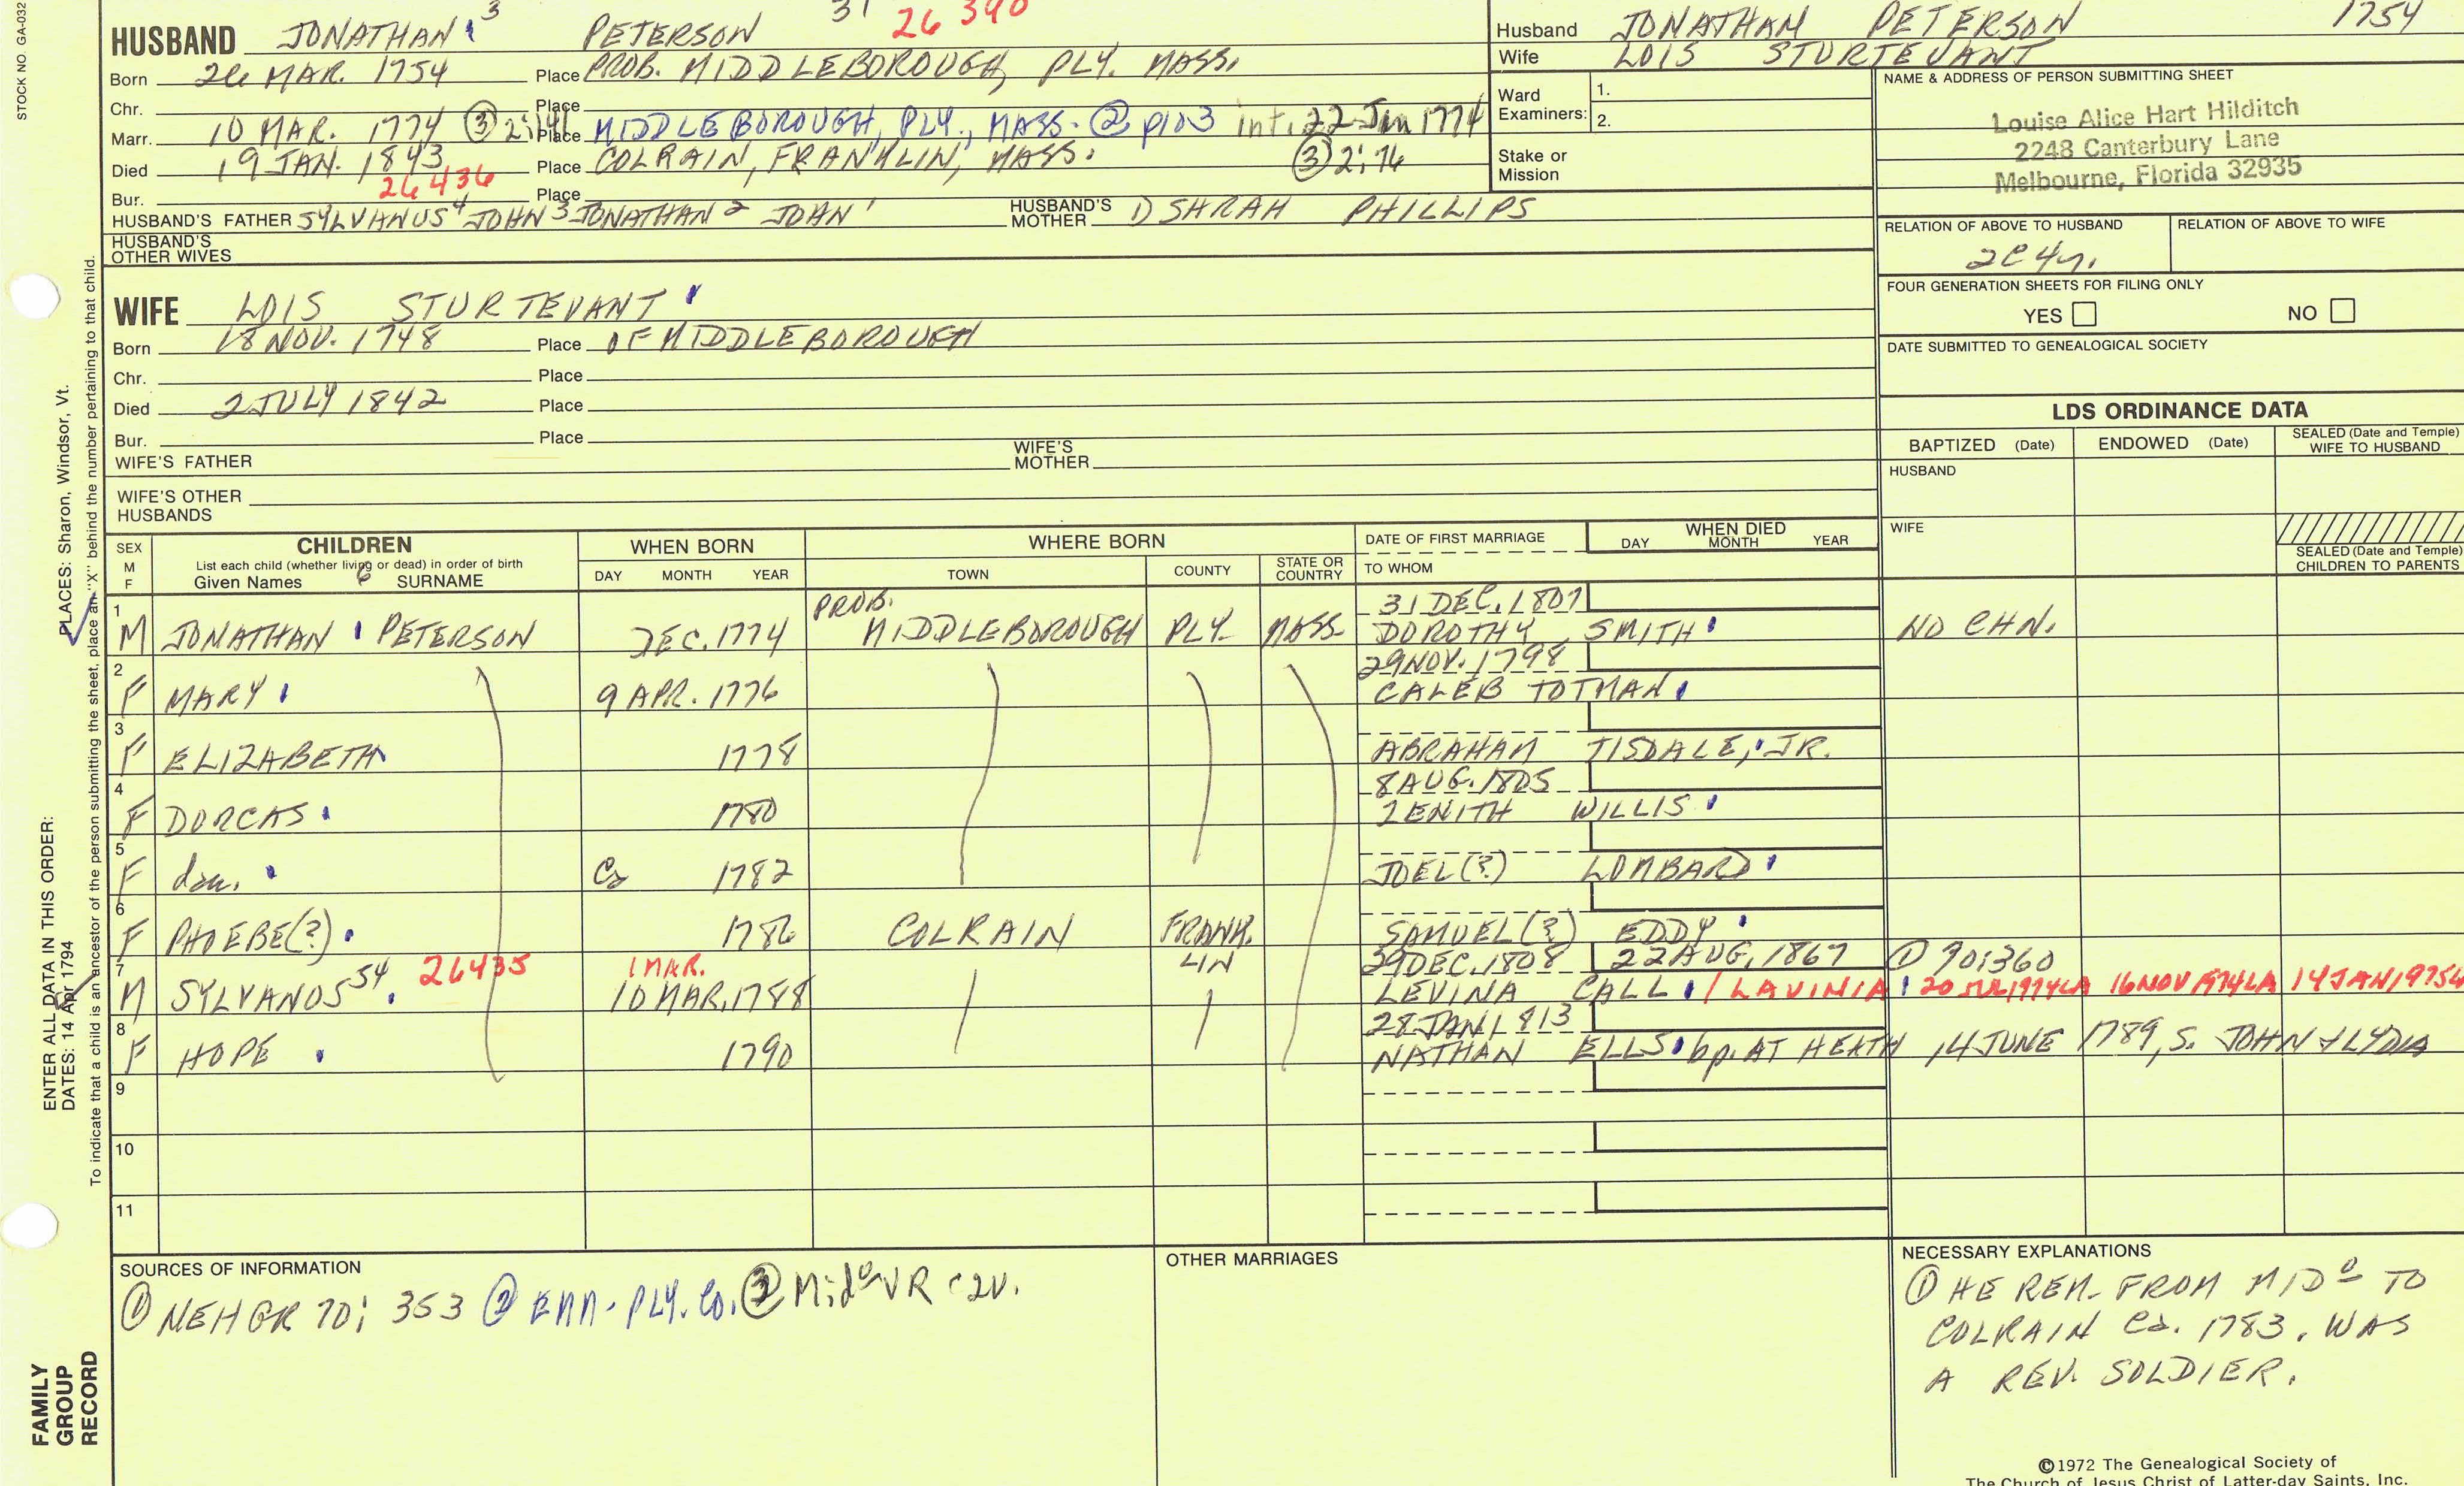 STOCK NO. GA-032
HUSBAND JONATHAN 3 PETERSON 31 26 390
Born 26 MAR. 1754 Place PROB. MIDDLEBOROUGH, PLY. MASS.
Chr. Place
Marr. 10 MAR. 1774 ③ 2:141 Place MIDDLEBOROUGH, PLY., MASS. ② p103 int. 22 Jan 1774
Died 19 JAN. 1843 Place COLRAIN, FRANKLIN, MASS. ③ 2:76
26436
Bur. Place
HUSBAND'S FATHER SYLVANUS 4 JOHN 3 JONATHAN 2 JOHN 1 HUSBAND'S MOTHER 1) SARAH PHILLIPS
HUSBAND'S OTHER WIVES
Husband JONATHAN PETERSON 1754
Wife LOIS STURTEVANT
Ward Examiners: 1.
2.
Stake or Mission
NAME & ADDRESS OF PERSON SUBMITTING SHEET
Louise Alice Hart Hilditch
2248 Canterbury Lane
Melbourne, Florida 32935
RELATION OF ABOVE TO HUSBAND RELATION OF ABOVE TO WIFE
2C4r.
FOUR GENERATION SHEETS FOR FILING ONLY
YES NO
DATE SUBMITTED TO GENEALOGICAL SOCIETY
WIFE LOIS STURTEVANT
Born 18 NOV. 1748 Place OF MIDDLEBOROUGH
Chr. Place
Died 2 JULY 1842 Place
Bur. Place
WIFE'S FATHER WIFE'S MOTHER
WIFE'S OTHER HUSBANDS
LDS ORDINANCE DATA
BAPTIZED (Date) ENDOWED (Date) SEALED (Date and Temple) WIFE TO HUSBAND
HUSBAND
WIFE
SEALED (Date and Temple) CHILDREN TO PARENTS
SEX M F CHILDREN WHEN BORN WHERE BORN DATE OF FIRST MARRIAGE WHEN DIED
List each child (whether living or dead) in order of birth
Given Names 6 SURNAME DAY MONTH YEAR TOWN COUNTY STATE OR COUNTRY TO WHOM DAY MONTH YEAR
1 PROB. 31 DEC. 1801
M JONATHAN PETERSON DEC. 1774 MIDDLEBOROUGH PLY. MASS. DOROTHY SMITH NO CHN.
2 29 NOV. 1798
F MARY 9 APR. 1776 CALEB TOTMAN
3
F ELIZABETH 1778 ABRAHAM TISDALE, JR.
4 8 AUG. 1805
F DORCAS 1780 ZENITH WILLIS
5
F dau. Ca 1782 JOEL(?) LOMBARD
6
F PHOEBE(?) 1786 COLRAIN FRANK- LIN SAMUEL(?) EDDY
7 26435 1 MAR. 29 DEC. 1808 22 AUG. 1867 ① 70:360
M SYLVANUS 54 10 MAR. 1788 LEVINA CALL / LAVINIA 20 JUL 1974 LA 16 NOV 1974 LA 14 JAN 1975 LA
8 28 JAN 1813
F HOPE 1790 NATHAN ELLS bp. AT HEATH 14 JUNE 1789, S. JOHN & LYDIA
9
10
11
SOURCES OF INFORMATION
① NEHGR 70: 353 ② EMM-PLY. Co. ③ Mido VR c2v.
OTHER MARRIAGES
NECESSARY EXPLANATIONS
① HE REM. FROM MIDo TO
COLRAIN Ca. 1783. WAS
A REV. SOLDIER.
©1972 The Genealogical Society of
The Church of Jesus Christ of Latter-day Saints, Inc.
FAMILY GROUP RECORD
ENTER ALL DATA IN THIS ORDER:
DATES: 14 Apr 1794
PLACES: Sharon, Windsor, Vt.
To indicate that a child is an ancestor of the person submitting the sheet, place an "X" behind the number pertaining to that child.